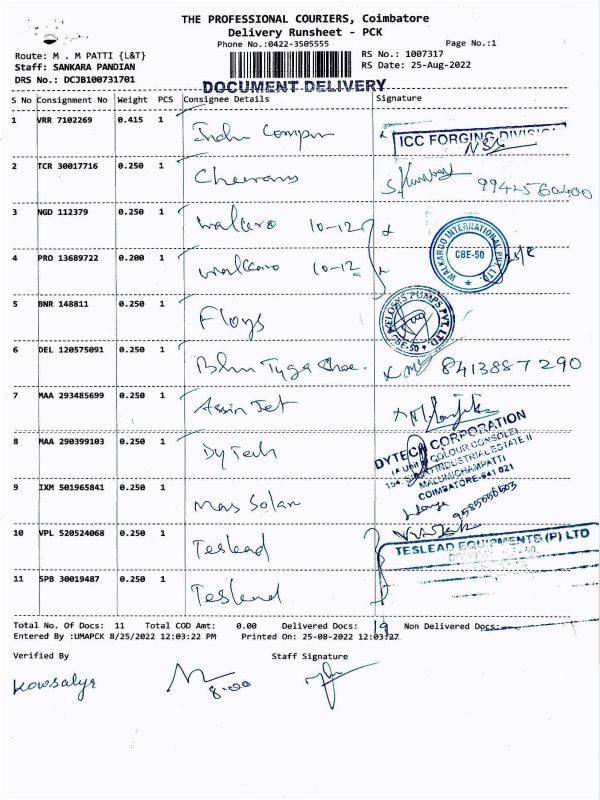 THE PROFESSIONAL COURIERS, Coimbatore
Delivery Runsheet - PCK
Phone No.:0422-3505555
Page No.:1
Route: M . M PATTI {L&T}
RS No.: 1007317
Staff: SANKARA PANDIAN
RS Date: 25-Aug-2022
DRS No.: DCJB100731701
DOCUMENT DELIVERY
S No Consignment No Weight PCS Consignee Details Signature
1 VRR 7102269 0.415 1
ICC FORGING DIVISION
2 TCR 30017716 0.250 1 Cheerans 9942560400
3 NGD 112379 0.250 1 Walkaro 10-12
WALKAROO INTERNATIONAL PVT. LTD
CBE-50
4 PRO 13689722 0.200 1 Walkaro 10-12
5 BNR 148811 0.250 1 Floys
PUMPS PVT. LTD
CBE-50
6 DEL 120575091 0.250 1 8413887290
7 MAA 293485699 0.250 1 Assin Jet
8 MAA 290399103 0.250 1 Dytech
DYTECH CORPORATION
(A Unit of COLOUR CONSOLE)
INDUSTRIAL ESTATE II
MALUMICHAMPATTI
COIMBATORE-641 021
9 IXM 501965841 0.250 1 Mas Solar
10 VPL 520524068 0.250 1 Teslead
TESLEAD EQUIPMENTS (P) LTD
11 SPB 30019487 0.250 1 Teslead
Total No. Of Docs: 11 Total COD Amt: 0.00 Delivered Docs: Non Delivered Docs:
Entered By :UMAPCK 8/25/2022 12:03:22 PM Printed On: 25-08-2022 12:03:27
Verified By Staff Signature
Kowsalya 8.00